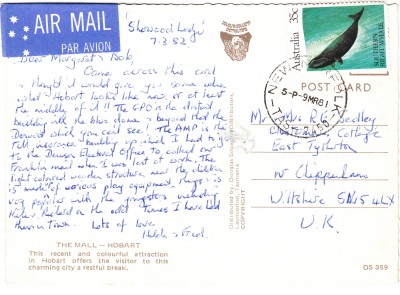 AIR MAIL
PAR AVION
'Sherwood Lodge'
7.3.82
Dear Margaret & Bob,
Came across this card
& thought it would give you some idea
what Hobart looks like — or at least
the middle of it!! The GPO is the distant
building with the blue dome & beyond that the
Derwent which you can't see! The AMP is the
tall insurance building up which I had to go
to the Electoral Office to collect our
Franklin mail when I was out of work. The
light coloured wooden structure near the children
is made of various play equipment. Maybe is
very popular with the youngsters including
Helen & Richard on the odd times I have had
them in Town. Lots of love
Fred.
THE MALL – HOBART
This recent and colourful attraction
in Hobart offers the visitor to this
charming city a restful break.
COPYRIGHT
35c
Australia
SOUTHERN RIGHT WHALE
5-P-9MR81
POST CARD
Mr. & Mrs. R.G. Sedley
Cottage
East Tytherton
Nr Chippenham
Wiltshire SN15 4LX
U.K.
OS 359